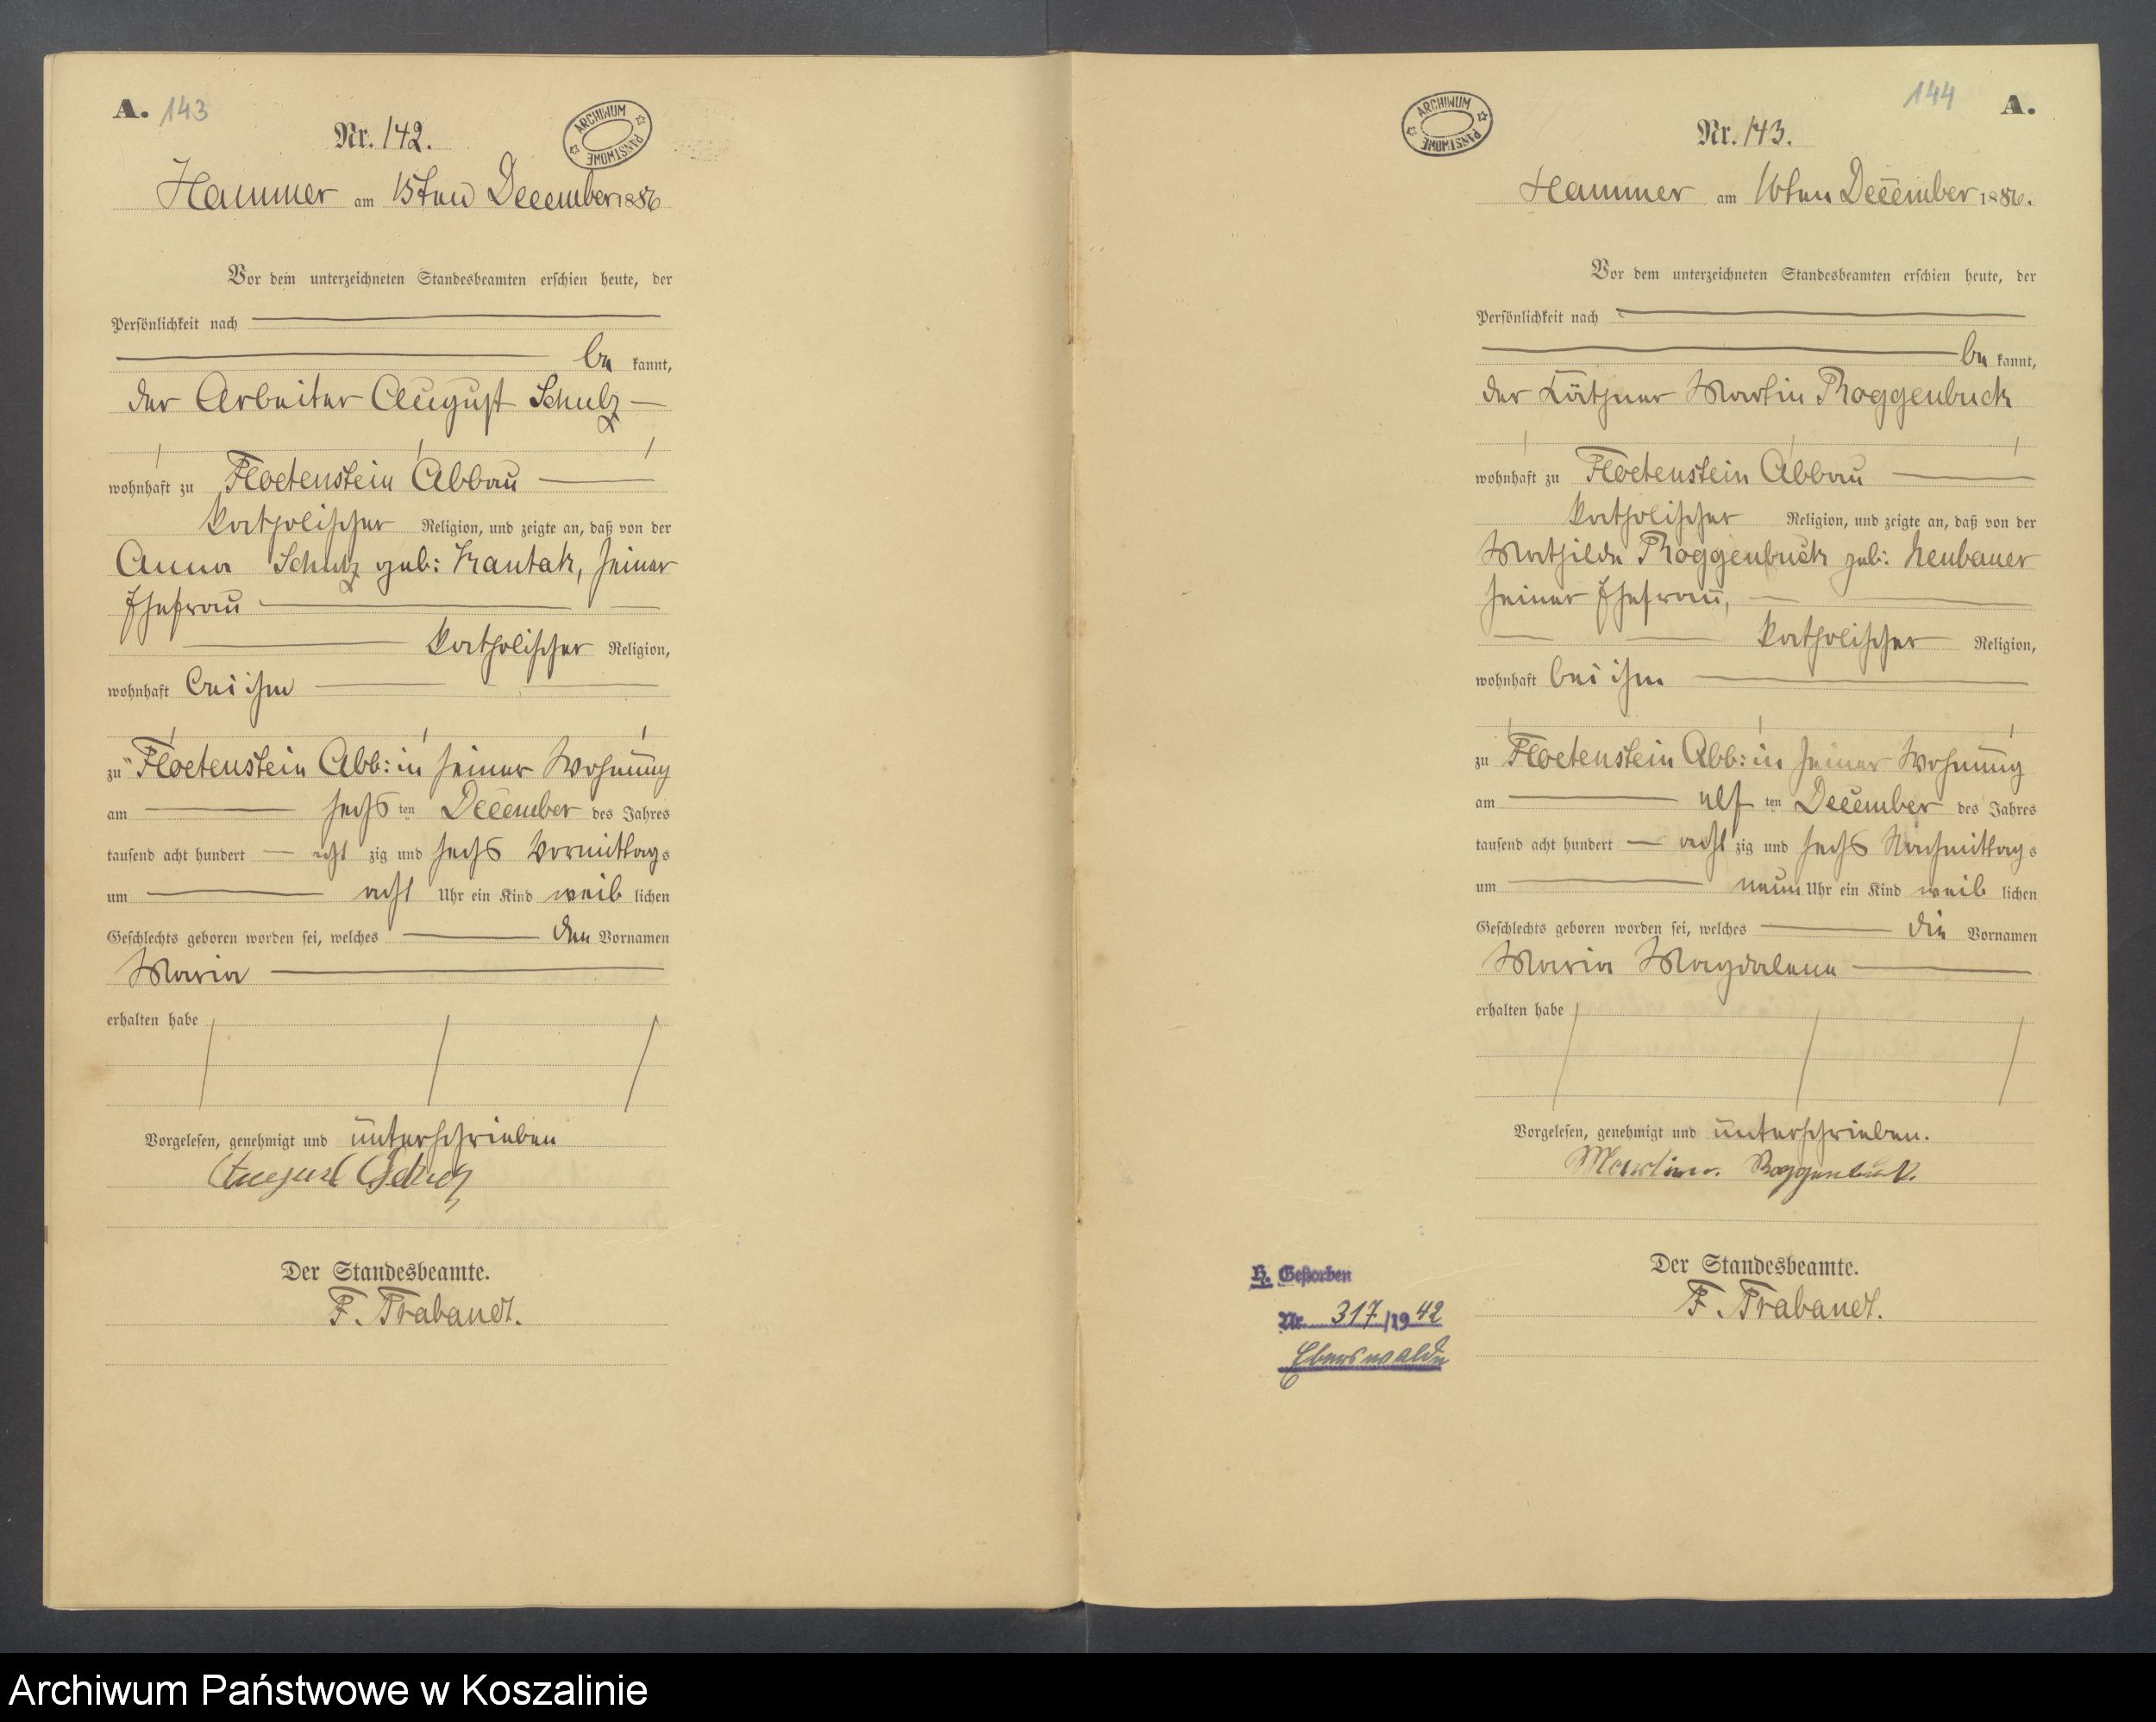 A. 143
Nr. 142.
ARCHIWUM PAŃSTWOWE
Hammer am 15ten December 1886
Vor dem unterzeichneten Standesbeamten erschien heute, der
Persönlichkeit nach
be kannt,
der Arbeiter August Schulz
wohnhaft zu Floetenstein Abbau
katholischer Religion, und zeigte an, daß von der
Anna Schulz geb: Kantak, seiner
Ehefrau
katholischer Religion,
wohnhaft bei ihm
zu Floetenstein Abb: in seiner Wohnung
am sechs ten December des Jahres
tausend acht hundert acht zig und sechs Vormittags
um acht Uhr ein Kind weib lichen
Geschlechts geboren worden sei, welches den Vornamen
Maria
erhalten habe
Vorgelesen, genehmigt und unterschrieben
August Schulz
Der Standesbeamte.
F. Trabandt.
144 A.
Nr. 143.
ARCHIWUM PAŃSTWOWE
Hammer am 16ten December 1886.
Vor dem unterzeichneten Standesbeamten erschien heute, der
Persönlichkeit nach
be kannt,
der Käthner Martin Roggenbuck
wohnhaft zu Floetenstein Abbau
katholischer Religion, und zeigte an, daß von der
Mathilde Roggenbuck geb: Neubauer
seiner Ehefrau,
katholischer Religion,
wohnhaft bei ihm
zu Floetenstein Abb: in seiner Wohnung
am elf ten December des Jahres
tausend acht hundert acht zig und sechs Nachmittags
um neun Uhr ein Kind weib lichen
Geschlechts geboren worden sei, welches die Vornamen
Maria Magdalena
erhalten habe
Vorgelesen, genehmigt und unterschrieben.
Martin Roggenbuck.
Der Standesbeamte.
F. Trabandt.
H. Gestorben
Nr. 317/1942
Eberswalde
Archiwum Państwowe w Koszalinie